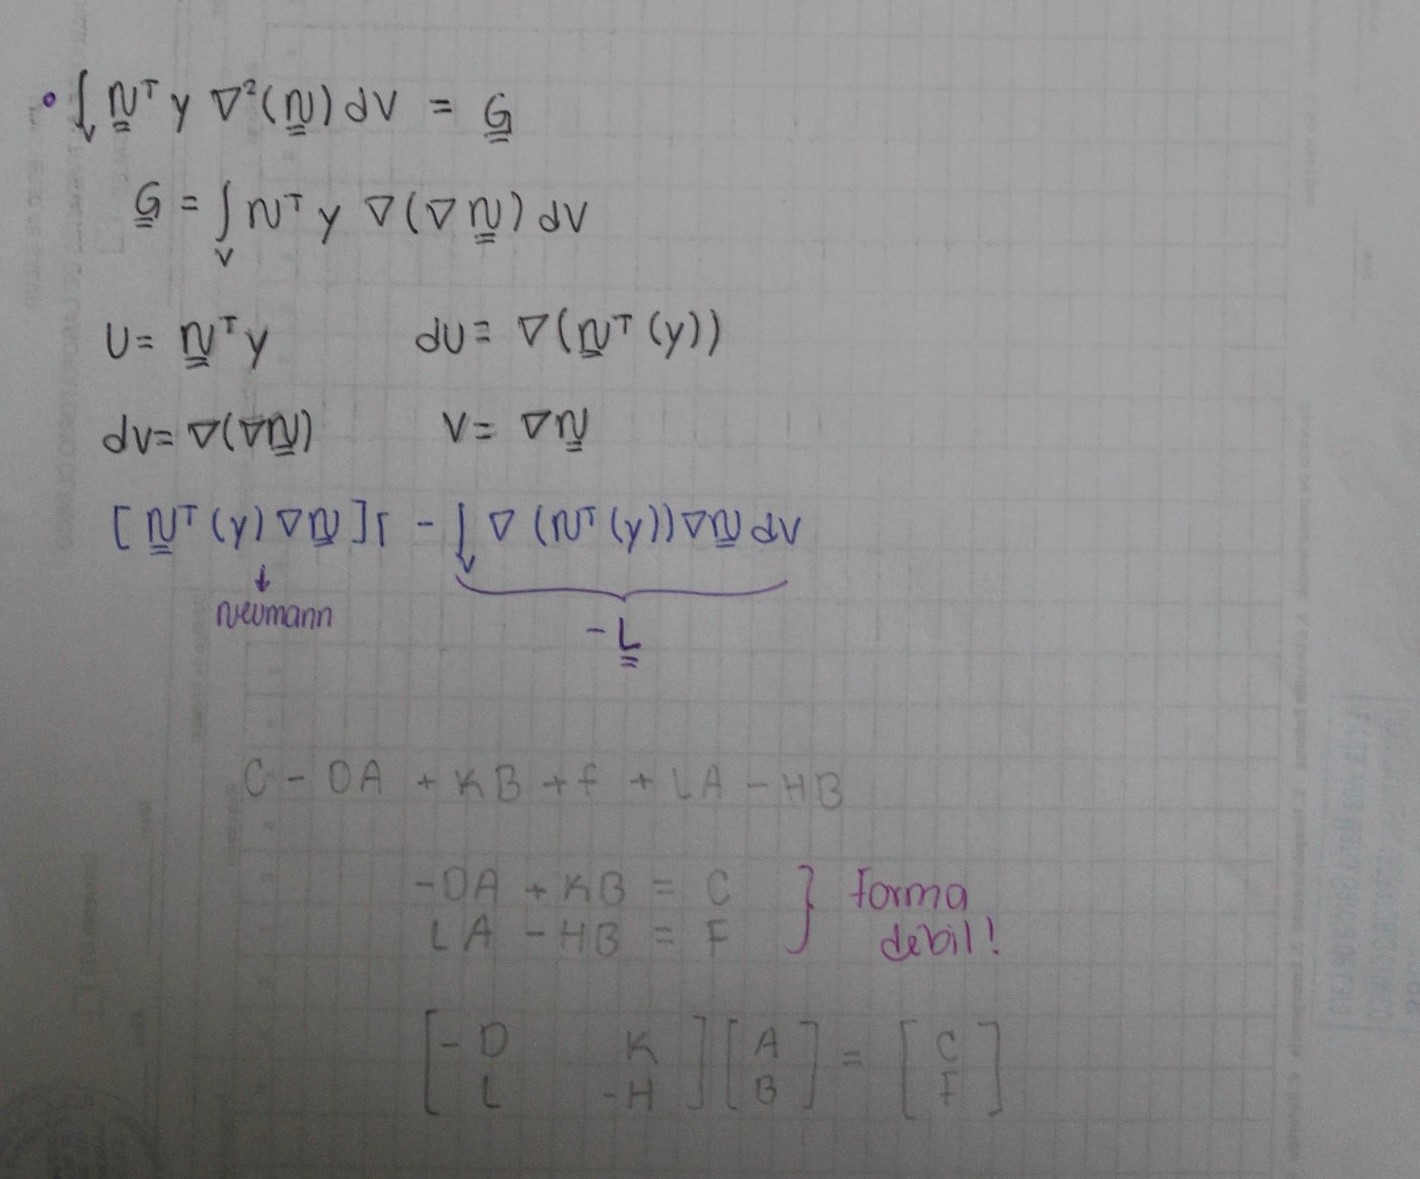 • ∫_V N^T y ∇²(N) dV = G
G = ∫_V N^T y ∇(∇N) dV
U = N^T y dU = ∇(N^T (y))
dV = ∇(∇N) V = ∇N
[N^T (y) ∇N]Γ - ∫_V ∇(N^T (y))∇N dV
↓
Neumann
-L
C - DA + KB + f + LA - HB
-DA + KB = C } Forma
LA - HB = F debil!
[-D K] [A] = [C]
[L -H] [B] [F]